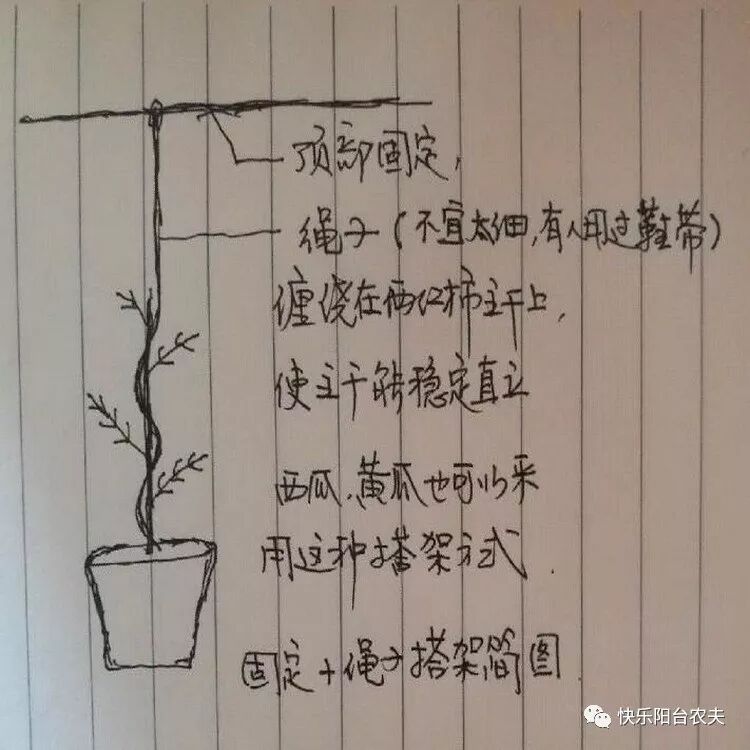 顶部固定,
绳子(不宜太细,有人用过鞋带)
缠绕在西红柿主干上,
使主干能稳定直立
西瓜、黄瓜也可以采
用这种搭架方式.
固定+绳子搭架简图
快乐阳台农夫